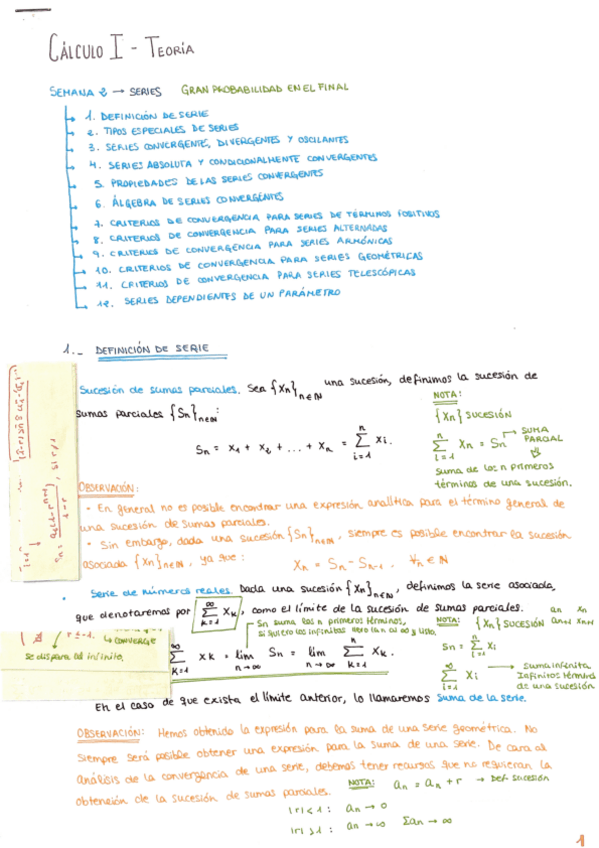 CÁLCULO I - TEORÍA
SEMANA 8 → SERIES GRAN PROBABILIDAD EN EL FINAL
1. DEFINICIÓN DE SERIE
2. TIPOS ESPECIALES DE SERIES
3. SERIES CONVERGENTE, DIVERGENTES Y OSCILANTES
4. SERIES ABSOLUTA Y CONDICIONALMENTE CONVERGENTES
5. PROPIEDADES DE LAS SERIES CONVERGENTES
6. ÁLGEBRA DE SERIES CONVERGENTES
7. CRITERIOS DE CONVERGENCIA PARA SERIES DE TÉRMINOS POSITIVOS
8. CRITERIOS DE CONVERGENCIA PARA SERIES ALTERNADAS
9. CRITERIOS DE CONVERGENCIA PARA SERIES ARMÓNICAS
10. CRITERIOS DE CONVERGENCIA PARA SERIES GEOMÉTRICAS
11. CRITERIOS DE CONVERGENCIA PARA SERIES TELESCÓPICAS
12. SERIES DEPENDIENTES DE UN PARÁMETRO
1._ DEFINICIÓN DE SERIE
Sucesión de sumas parciales. Sea {Xn}n∈N una sucesión, definimos la sucesión de
sumas parciales {Sn}n∈N:
Sn = x1 + x2 + ... + xn = Σ(i=1, n) xi.
NOTA:
{Xn} SUCESIÓN
Σ(i=1, n) Xn = Sn → SUMA PARCIAL
suma de los n primeros
términos de una sucesión.
OBSERVACIÓN:
• En general no es posible encontrar una expresión analítica para el término general de
una sucesión de sumas parciales.
• Sin embargo, dada una sucesión {Sn}n∈N, siempre es posible encontrar la sucesión
asociada {Xn}n∈N, ya que: Xn = Sn - Sn-1, ∀n∈N
Serie de números reales. Dada una sucesión {Xn}n∈N, definimos la serie asociada,
que denotaremos por Σ(k=1, ∞) Xk, como el límite de la sucesión de sumas parciales.
Sn suma los n primeros términos,
NOTA: {Xn} SUCESIÓN
Sn = Σ(i=1, n) Xi
Σ(k=1, ∞) Xk = lim(n→∞) Sn = lim(n→∞) Σ(k=1, n) Xk.
Σ(i=1, ∞) Xi → suma infinita
Infinitos términos
de una sucesión
r ≤ -1. ↳ CONVERGE
se dispara al infinito.
En el caso de que exista el límite anterior, lo llamaremos suma de la serie.
OBSERVACIÓN: Hemos obtenido la expresión para la suma de una serie geométrica. No
siempre será posible obtener una expresión para la suma de una serie. De cara al
análisis de la convergencia de una serie, debemos tener recursos que no requieran la
obtención de la sucesión de sumas parciales.
NOTA: an = an + r → Def. sucesión
|r| < 1: an → 0
|r| > 1: an → ∞ Σan → ∞
1